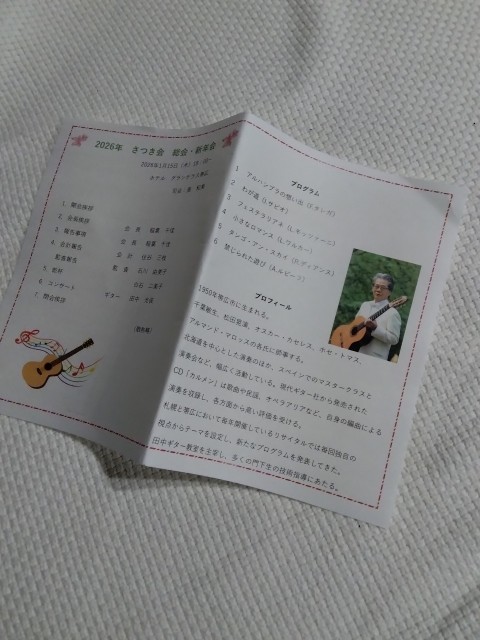 2026年 さつき会 総会・新年会
2026年1月15日(木)
ホテル
司会:
1. 開会挨拶
2. 会長挨拶
3. 報告事項
4. 会計報告
監査報告
5. 乾杯
6. コンサート
7. 閉会挨拶
会長
会長
会計
監査
ギター
プログラム
1 アルハンブラの想い出(F.タレガ)
2 わが道(L.サビオ)
3 フェステラリアネ(L.モッツァーニ)
4 小さなロマンス(L.ワルカー)
5 タンゴ・アン・スカイ(R.ディアンス)
6 禁じられた遊び(A.ルビーラ)
プロフィール
1950年帯広市に生まれる。
ホセ・トマス、
アルマンド・マロッスの各氏に師事する。
北海道を中心とした演奏のほか、スペインでのマスタークラスと
演奏会など、幅広く活動している。現代ギター社から発売された
CD「カルメン」は歌曲や民謡、オペラアリアなど、自身の編曲による
演奏を収録し、各方面から高い評価を受ける。
札幌と帯広において毎年開催しているリサイタルでは毎回独自の
視点からテーマを設定し、新たなプログラムを発表してきた。
田中ギター教室を主宰し、多くの門下生の技術指導にあたる。